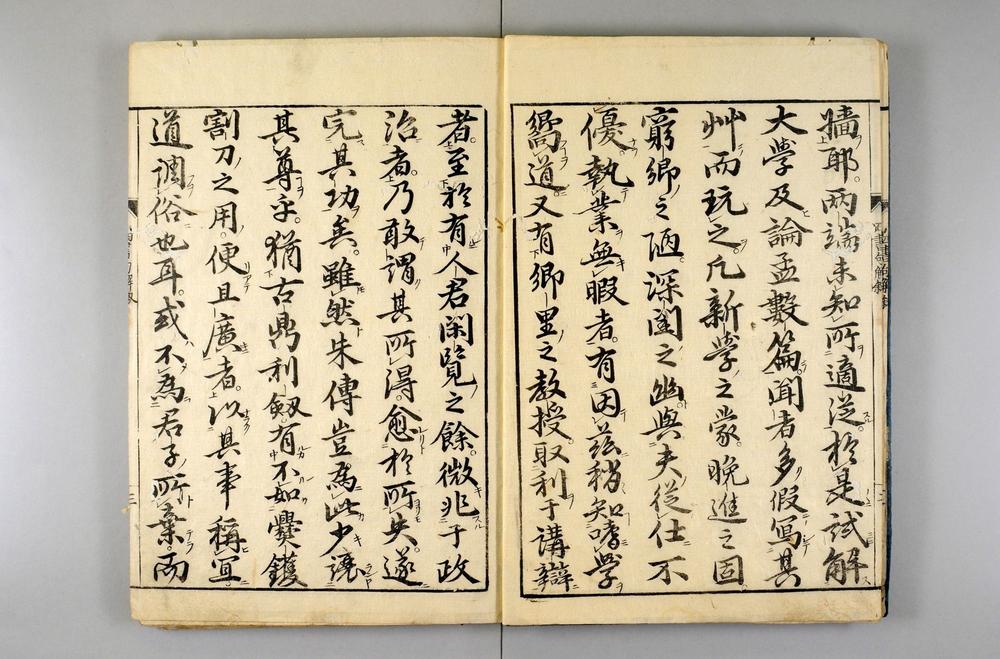 牆耶両端未知所適從於是試解
大学及論孟数篇聞者多假写其
艸而玩之凡新学之蒙晩進之固
窮郷之陋深閨之幽與夫従仕不
優執業無暇者有因茲稍知嗜学
嚮道又有郷里之教授取利于講辯
者至於有人君閑覧之餘微兆于政
治者乃敢謂其所得愈於所失遂
完其功矣雖然朱傳豈為此少譲
其尊乎猶古鼎利劔有不如爨鑊
割刀之用便且廣者以其事稱宜
道調俗也耳或不為君子所棄而